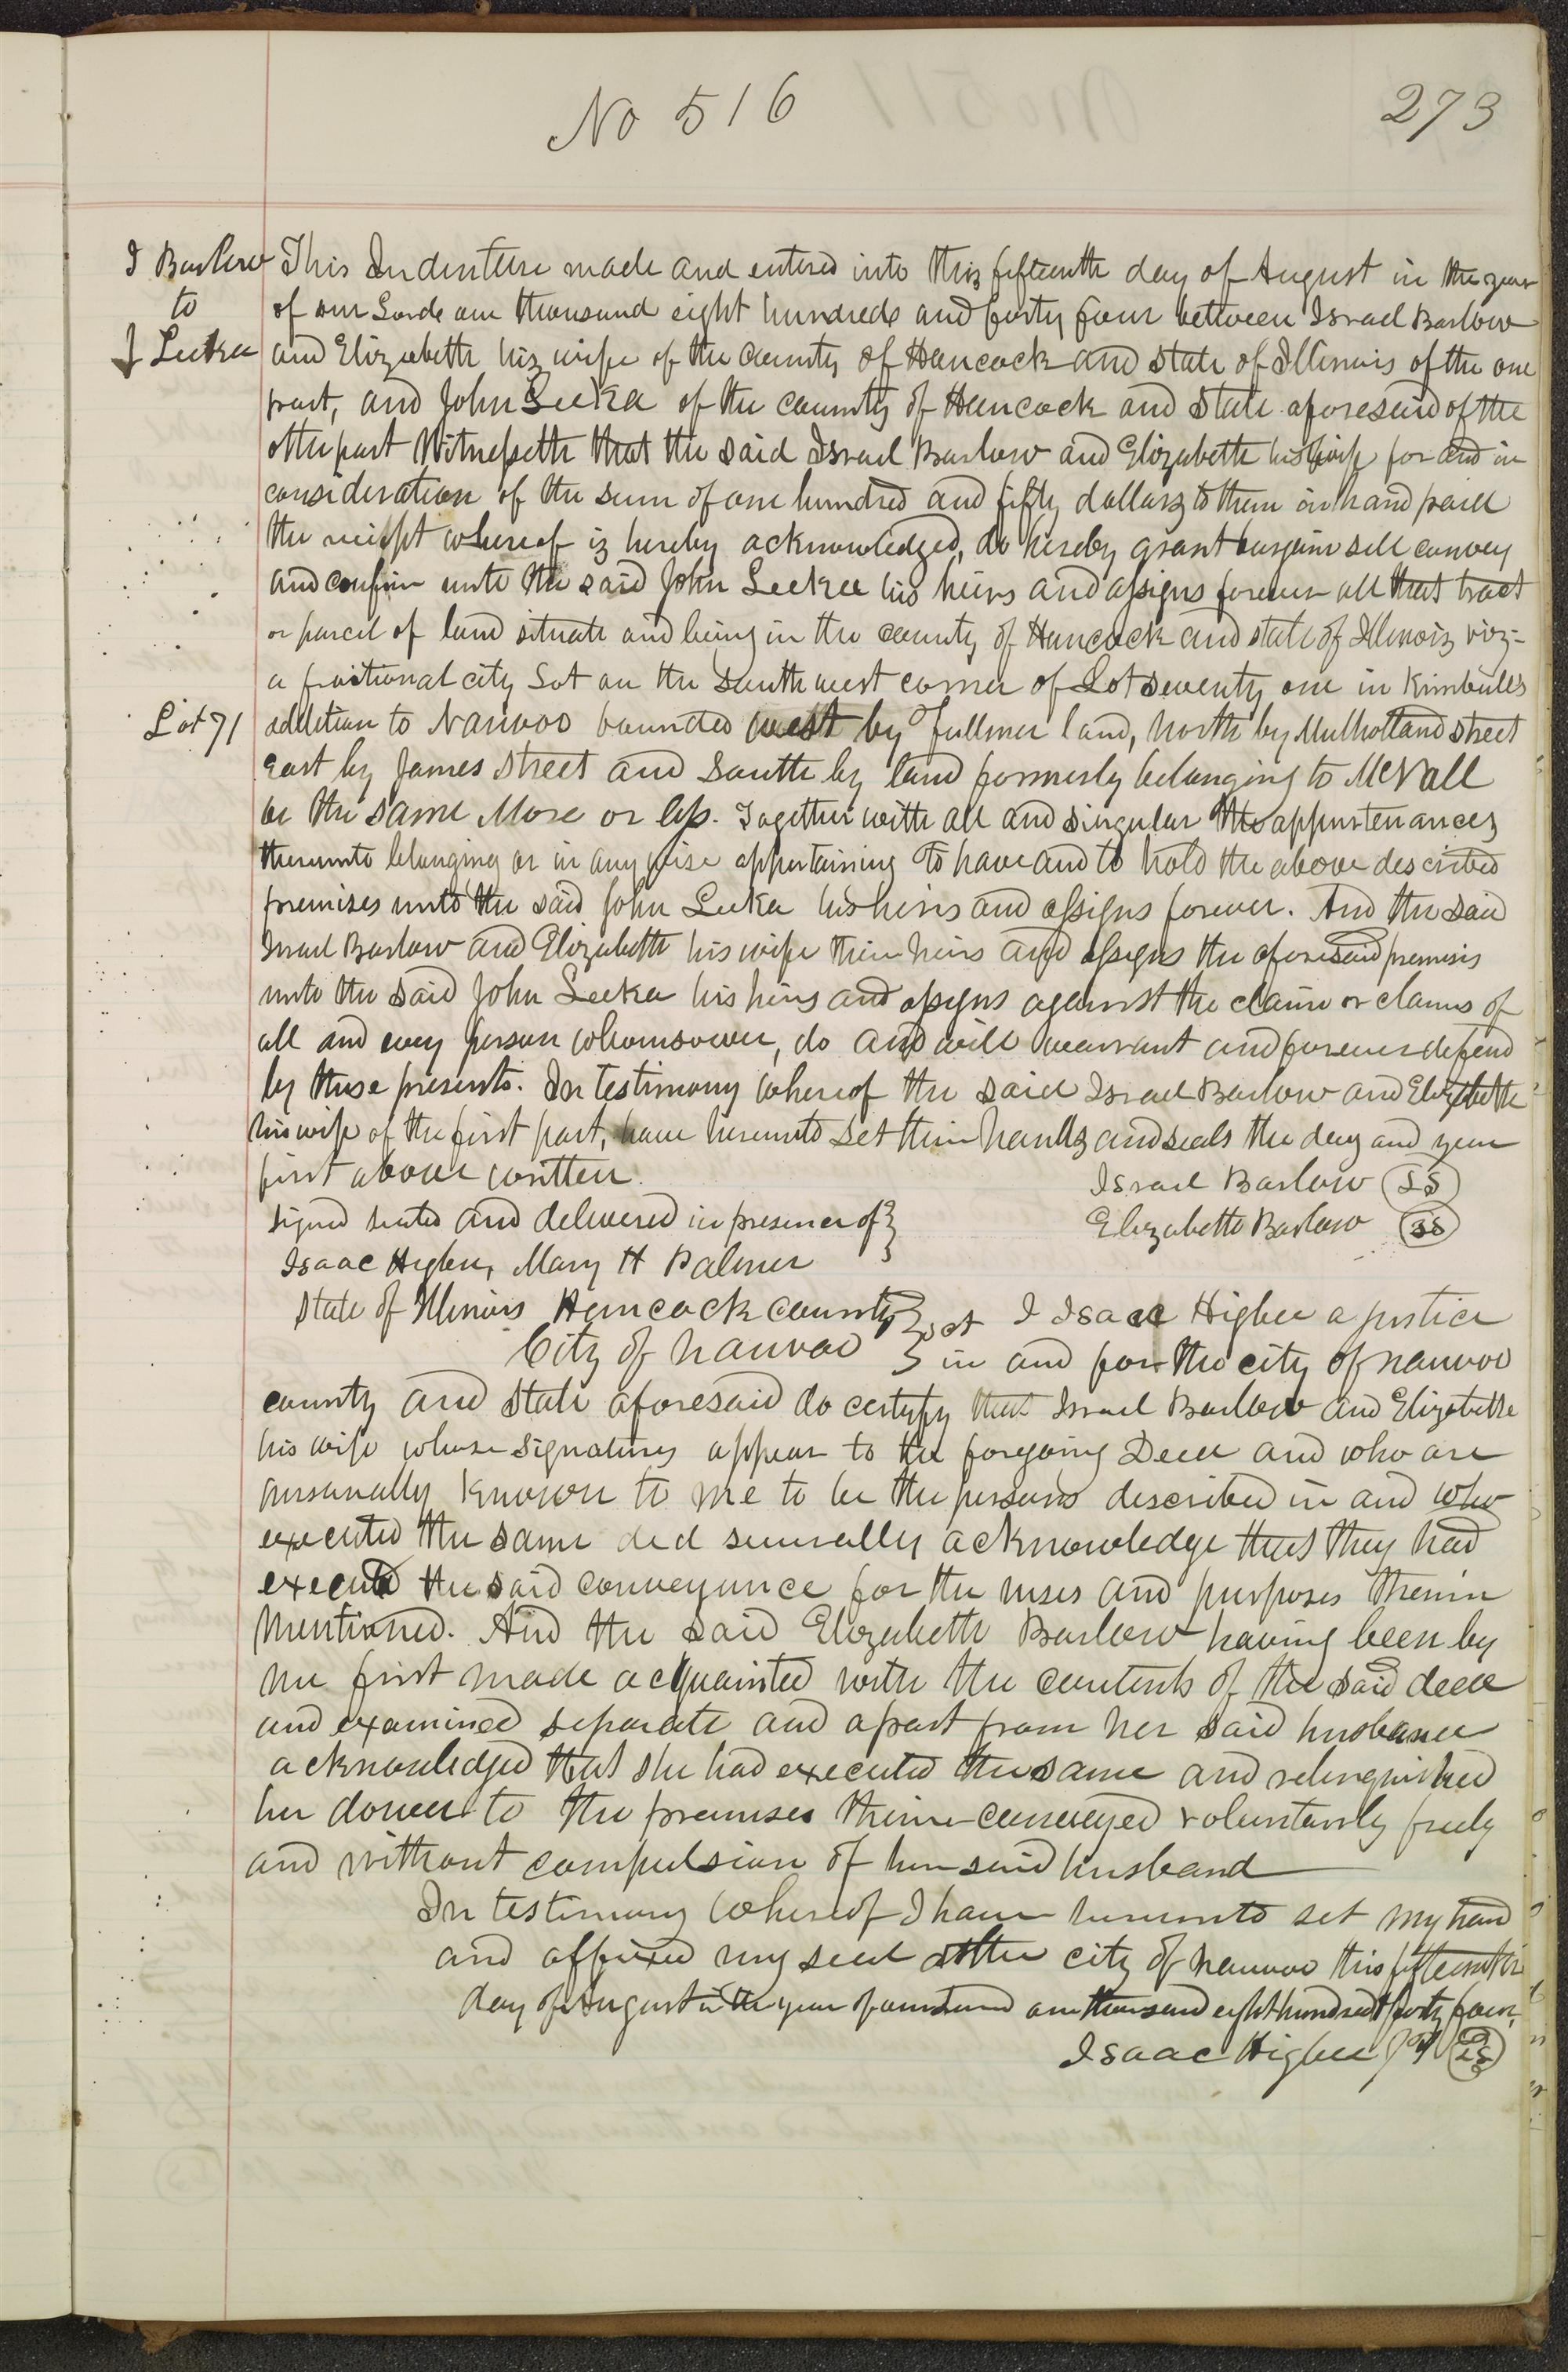 No 516
273
I Barlow
to
J Leeka
This Indenture made and entered into this fifteenth day of August in the year
of our Lord one thousand eight hundred and forty four between Israel Barlow
and Elizabeth his wife of the county of Hancock and State of Illinois of the one
part, and John Leeka of the county of Hancock and State aforesaid of the
other part Witnesseth that the said Israel Barlow and Elizabeth his wife for and in
consideration of the sum of one hundred and fifty dollars to them in hand paid
the receipt whereof is hereby acknowledged, do hereby grant bargain sell convey
and confirm unto the said John Leeka his heirs and assigns forever all that tract
or parcel of land situate and being in the county of Hancock and state of Illinois viz-
a fractional city Lot on the South west corner of Lot seventy one in Kimball's
Lot 71
addition to Nauvoo bounded west by Fullmer land, north by Mulholland street
East by James Street and South by land formerly belonging to McNall
be the same More or less. Together with all and singular the appurtenances
thereunto belonging or in any wise appertaining To have and to hold the above described
premises unto the said John Leeka his heirs and assigns forever. And the said
Israel Barlow and Elizabeth his wife their heirs and assigns the aforesaid premises
unto the said John Leeka his heirs and assigns against the claim or claims of
all and every person whomsoever, do and will warrant and forever defend
by these presents. In testimony whereof the said Israel Barlow and Elizabeth
his wife of the first part, have hereunto set their hands and seals the day and year
first above written.
Israel Barlow LS
Signed sealed and delivered in presence of
Elizabeth Barlow LS
Isaac Higbee, Mary H Palmer
State of Illinois Hancock County
City of Nauvoo
sct I Isaac Higbee a justice
in and for the city of Nauvoo
county and State aforesaid do certify that Israel Barlow and Elizabeth
his wife whose signatures appear to the foregoing Deed and who are
personally known to me to be the persons described in and who
executed the same did severally acknowledge that they had
executed the said conveyance for the uses and purposes therein
Mentioned. And the said Elizabeth Barlow having been by
me first made acquainted with the contents of the said deed
and examined separate and apart from her said husband
acknowledged that she had executed the same and relinquished
her dower to the premises therein conveyed voluntarily freely
and without compulsion of her said husband
In testimony whereof I have hereunto set my hand
and affixed my seal at the city of Nauvoo this fifteenth
day of August in the year of our Lord one thousand eight hundred forty four,
Isaac Higbee JP LS